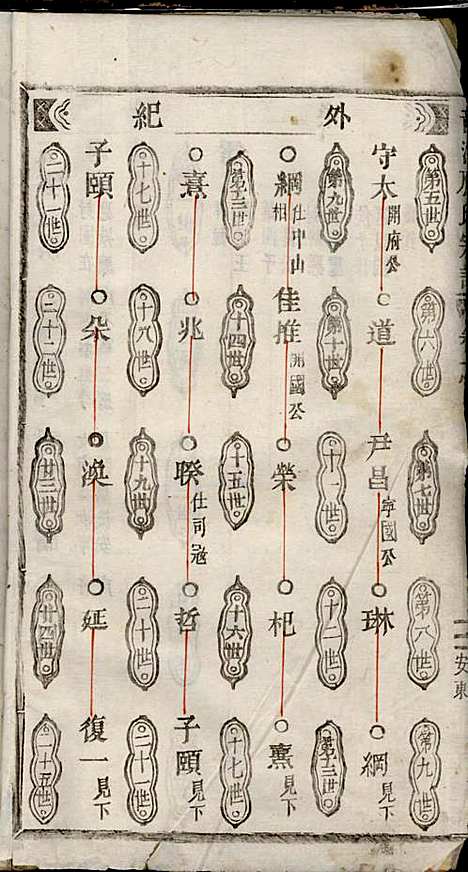 外紀
第五世 第六世 第七世 第八世 第九世
守太 開府公 道 尹昌 寧國公 琳 綱 見下
第九世 第十世 十一世 十二世 第十三世
綱 仕中山相 佳推 開國公 榮 杞 熹 見下
第十三世 十四世 十五世 十六世 十七世
熹 兆 睽 仕司寇 哲 子頤 見下
十七世 十八世 十九世 二十世 二十一世
子頤 朵 渙 延 復一 見下
二十一世 二十二世 廿三世 廿四世 二十五世